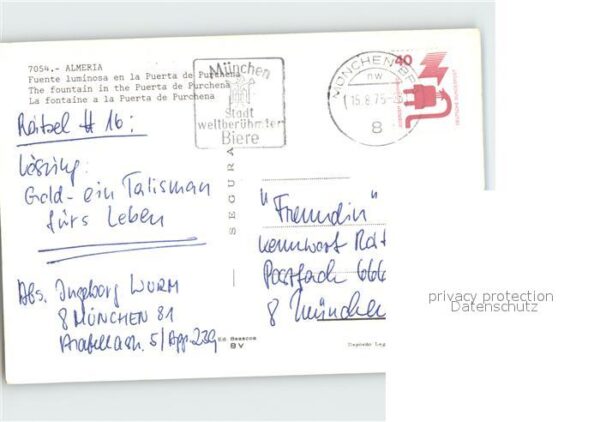 7054.- ALMERIA
Fuente luminosa en la Puerta de Purchena
The fountain in the Puerta de Purchena
La fontaine a la Puerta de Purchena
München
Stadt
weltberühmter
Biere
MÜNCHEN BP
nw
15.8.75
8
40
Rätsel # 16:
Lösung:
Gold - ein Talisman
fürs Leben
Abs. Ingeborg WURM
8 MÜNCHEN 81
Arabellastr. 5/App. 239
SEGURA
"Freundin"
Kennwort Rät
Postfach 666
8 München
Ed.
BV
Deposito Leg
privacy protection
Datenschutz